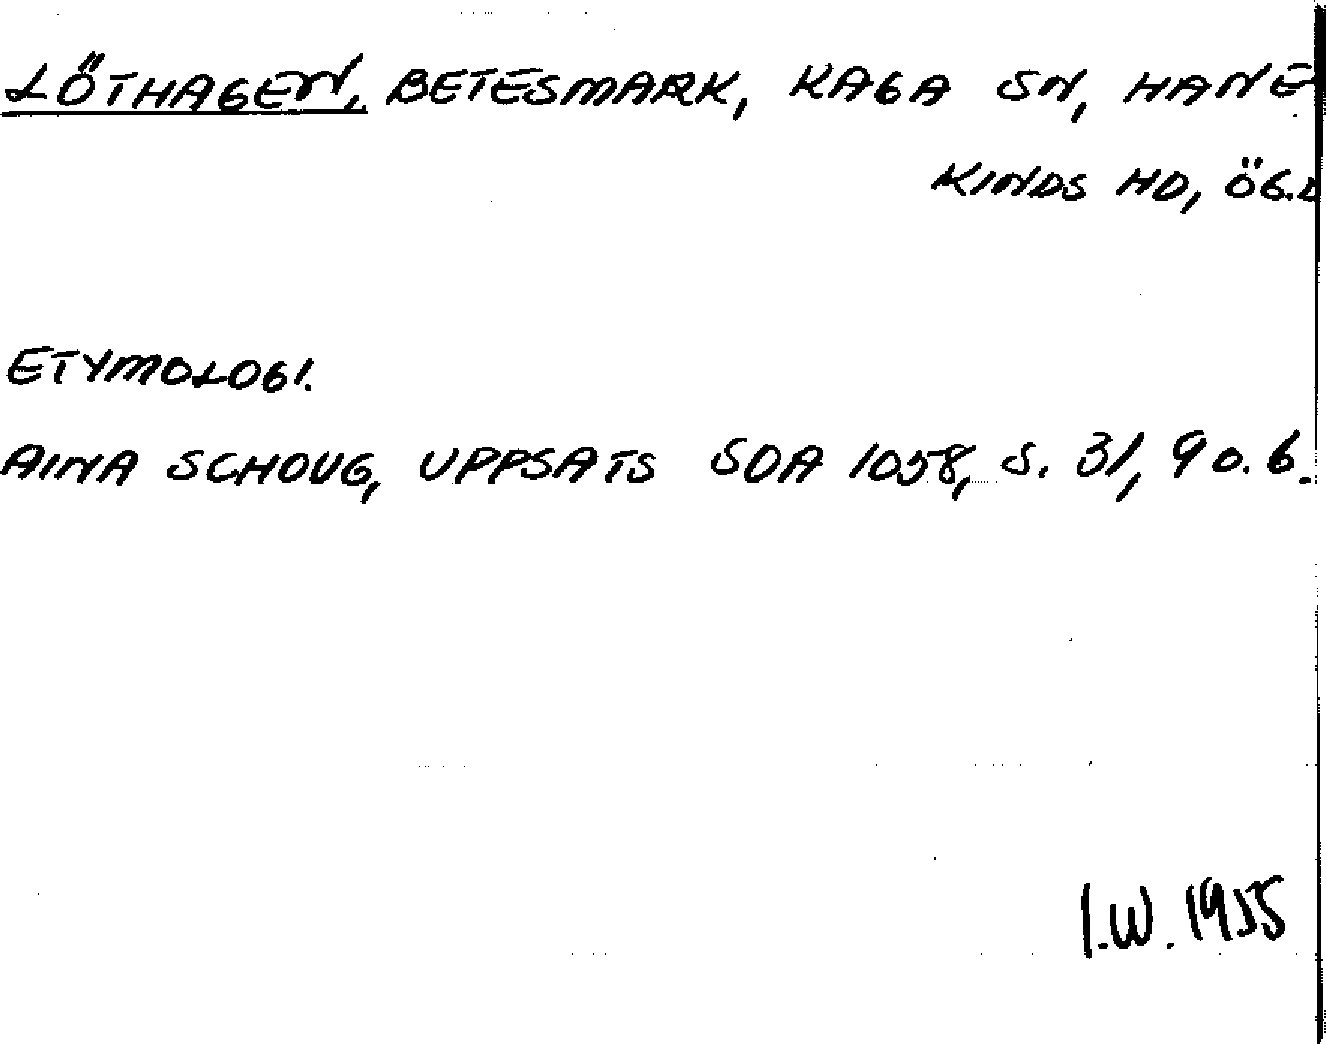 LÖTHAGEN, BETESMARK, KAGA SN, HANE
KINDS HD, ÖG.L
ETYMOLOGI.
AINA SCHOUG, UPPSATS SOA 1058, S. 31, 90.6.
I.W. 1955